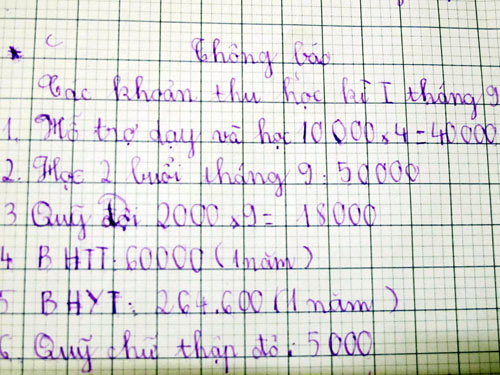 Thông báo
Các khoản thu học kì I tháng 9
1. Hỗ trợ dạy và học 10 000 x 4 = 40 000
2. Học 2 buổi tháng 9 : 50000
3 Quỹ đội 2000 x 9 = 18000
4 BHTT: 60000 (1 năm)
5 BHYT: 264.600 (1 năm)
6. Quỹ chữ thập đỏ: 5000